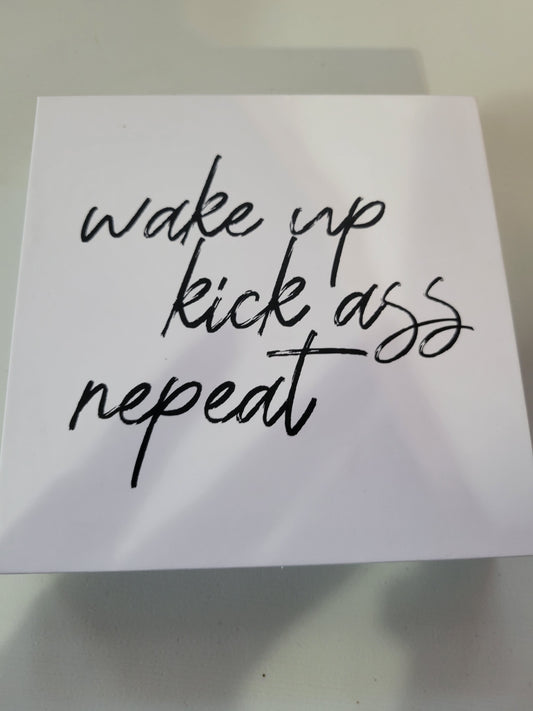 wake up
kick ass
repeat